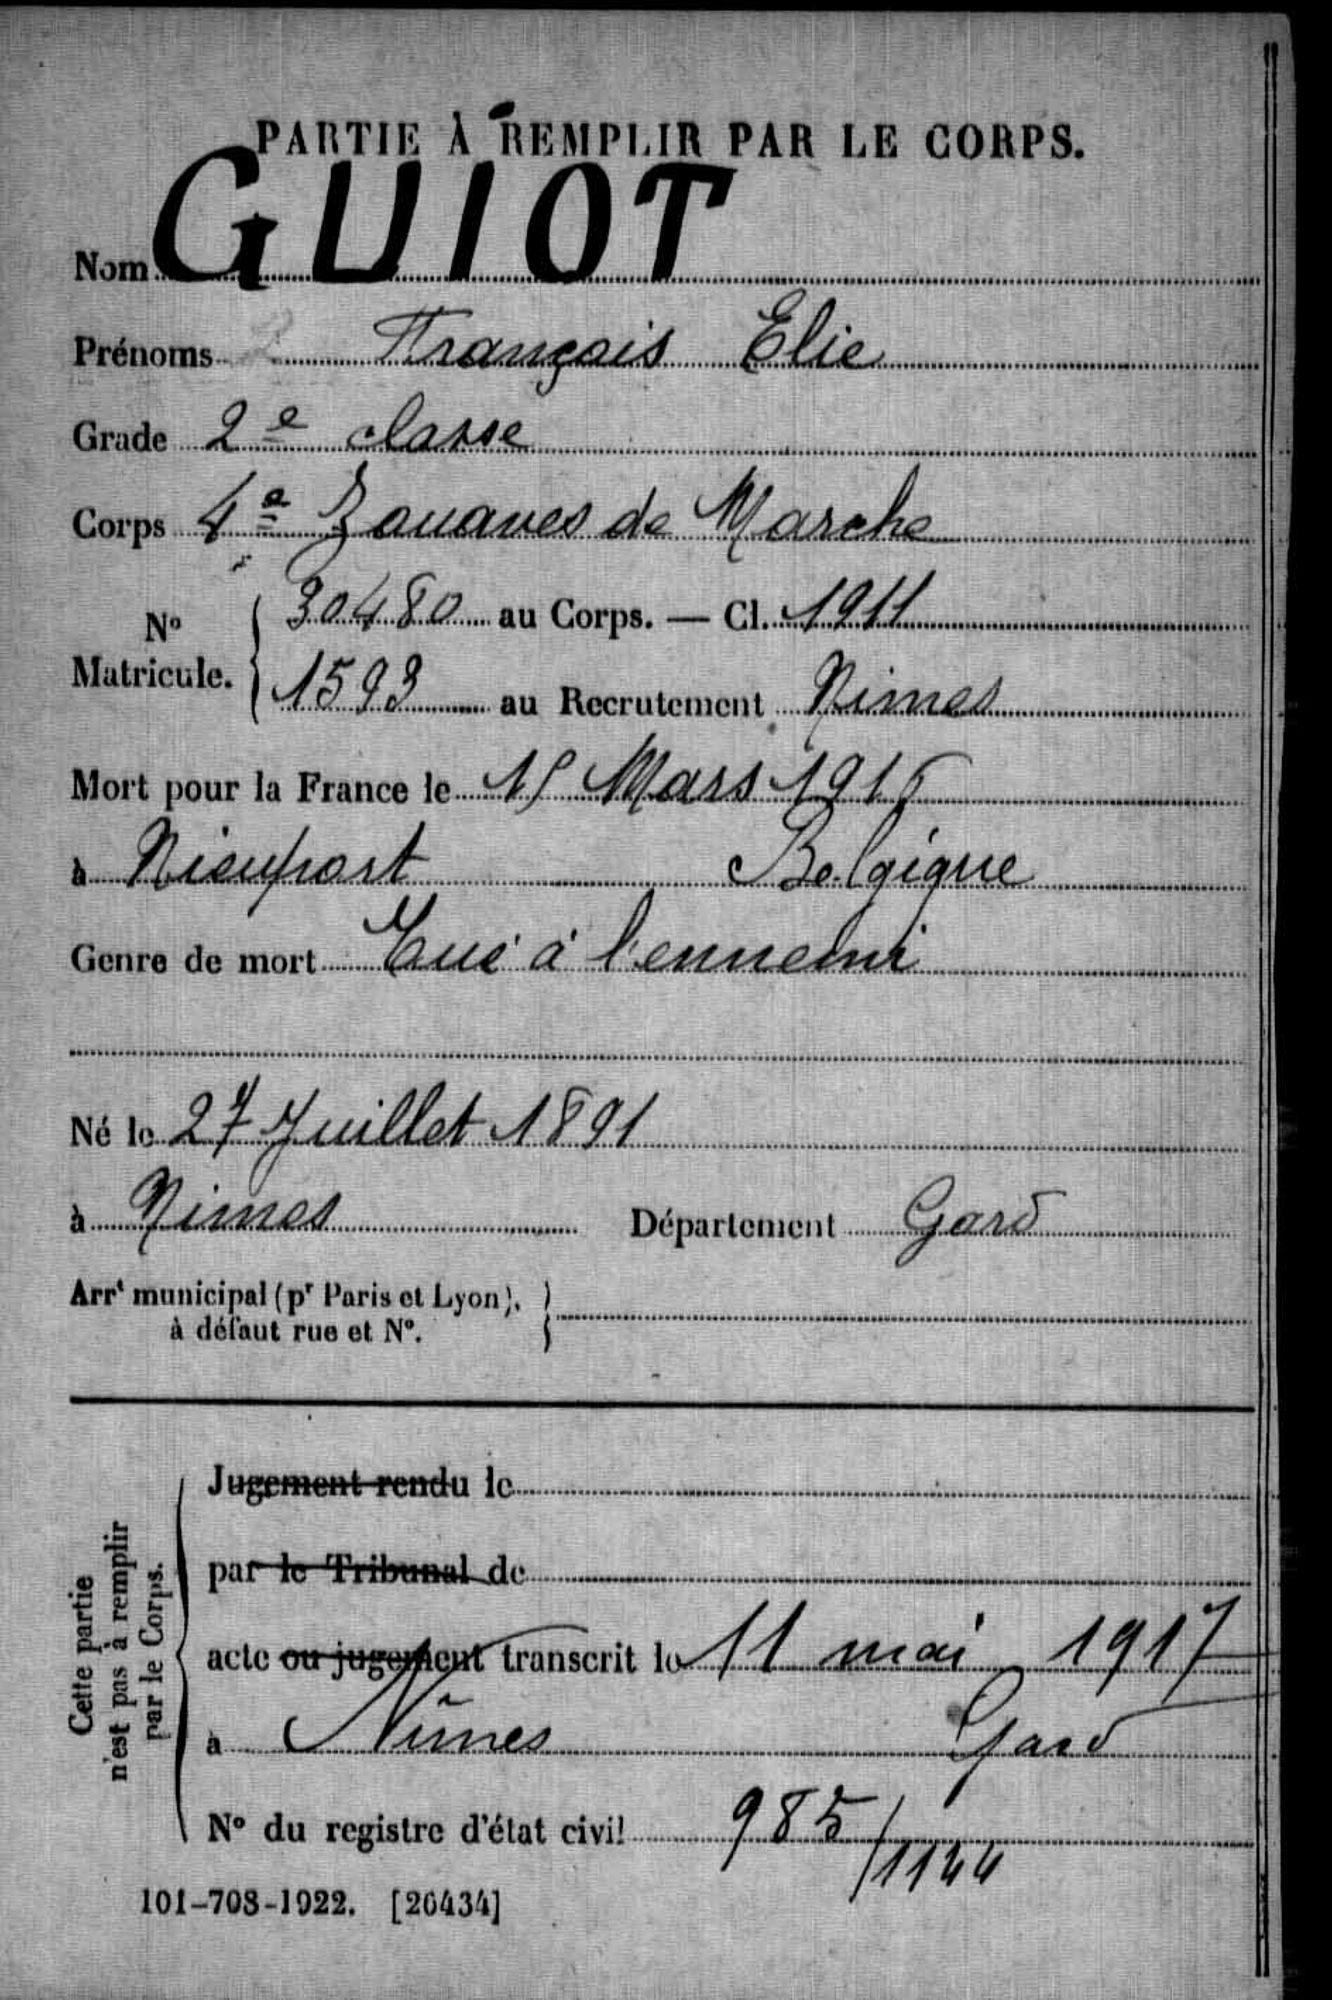 PARTIE À REMPLIR PAR LE CORPS.
Nom GUIOT
Prénoms François Elie
Grade 2e classe
Corps 4e Zouaves de Marche
No Matricule. 30480 au Corps. — Cl. 1911
1593 au Recrutement Nimes
Mort pour la France le Mars
à Nieuport Belgique
Genre de mort Tué à l'ennemi
Né le 27 Juillet 1891
à Nimes Département Gard
Arrt municipal (pr Paris et Lyon),
à défaut rue et No.
Cette partie
n'est pas à remplir
par le Corps.
Jugement rendu le
par le Tribunal de
acte ou jugement transcrit le 11 mai 1917
à Nîmes Gard
No du registre d'état civil 985/1144
101-708-1922. [26434]